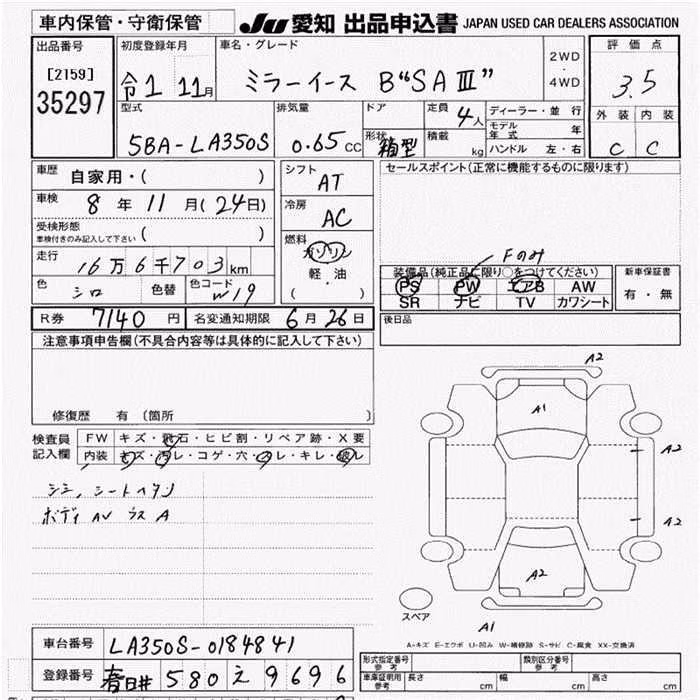 車内保管・守衛保管 JU 愛知 出品申込書 JAPAN USED CAR DEALERS ASSOCIATION
出品番号 初度登録年月 車名・グレード 2WD・4WD 評価点
[2159] 35297 令1 11月 ミラーイース B"SAⅢ" 3.5
型式 排気量 ドア 定員 4人 ディーラー・並行 外装 内装
モデル年式 年
5BA-LA350S 0.65CC 形状 箱型 積載 kg ハンドル 左・右 C C
車歴 自家用・( ) シフト AT セールスポイント(正常に機能するものに限ります)
車検 8年11月(24日) 冷房 AC
受検形態 車検付きのみ記入して下さい ( )
燃料 ガソリン
走行 16万6千703km 軽・油 Fのみ
( )
装備品(純正品に限り○をつけてください) 新車保証書
色 シロ 色替 色コード W19 PS PW エアB AW 有・無
SR ナビ TV カワシート
R券 7140円 名変通知期限 6月26日 後日品
注意事項申告欄(不具合内容等は具体的に記入して下さい)
修復歴 有 (箇所 )
検査員 FW キズ・飛石・ヒビ割・リペア跡・X要
記入欄 内装 キズ・汚レ・コゲ・穴・スレ・キレ・破レ
シミ、シートヘタリ
ボディ AV ラス A
A2
A1
A2
A2
A2
スペア
A1
A=キズ E=エクボ U=凹み W=補修跡 S=サビ C=腐食 XX=交換済
車台番号 LA350S-0184841
登録番号 春日井 580 え 9696
形式指定番号 参考 類別区分番号 参考
車庫証明用 参考 長さ cm 幅 cm 高さ cm